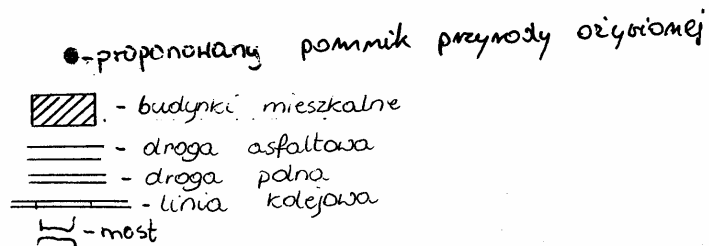 - proponowany pomnik przyrody ożywionej
- budynki mieszkalne
- droga asfaltowa
- droga polna
- linia kolejowa
- most